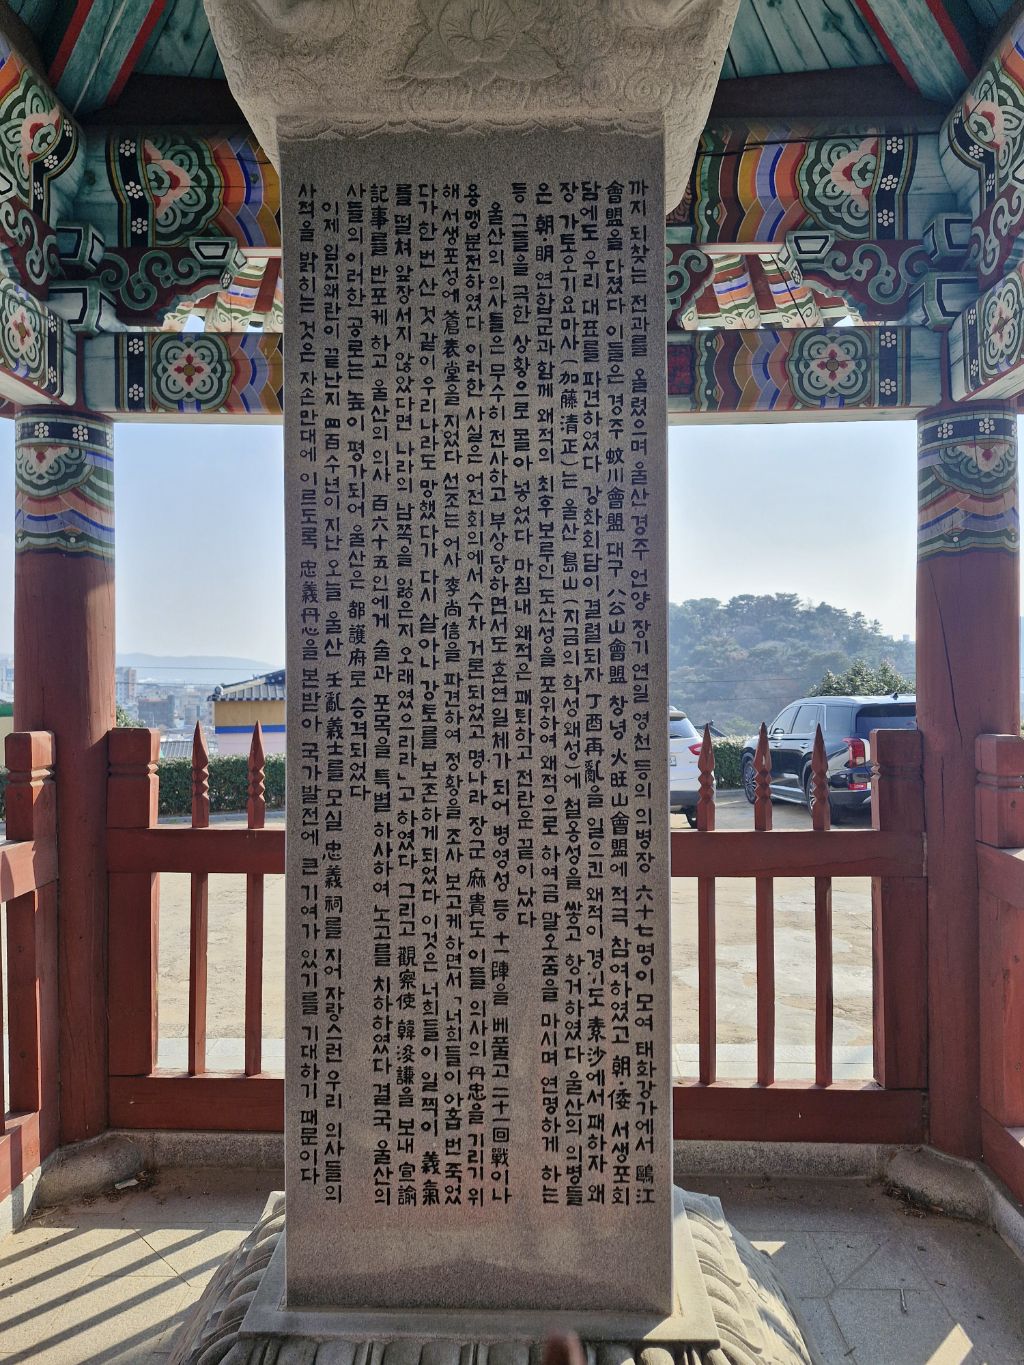 까지 되찾는 전과를 올렸으며 울산 경주 언양 장기 연일 영천 등의 의병장 六十七명이 모여 태화강가에서 鷗江
會盟을 다졌다 이들은 경주 蚊川會盟 대구 八公山會盟 창녕 火旺山會盟에 적극 참여하였고 朝·倭 서생포회
담에도 우리 대표를 파견하였다 강화회담이 결렬되자 丁酉再亂을 일으킨 왜적이 경기도 素沙에서 패하자 왜
장 가토오기요마사(加藤清正)는 울산 島山(지금의 학성왜성)에 철옹성을 쌓고 항거하였다 울산의 의병들
은 朝·明 연합군과 함께 왜적의 최후보루인 도산성을 포위하여 왜적으로 하여금 말오줌을 마시며 연명하게 하는
등 그들을 극한 상황으로 몰아 넣었다 마침내 왜적은 패퇴하고 전란은 끝이 났다
울산의 의사들은 무수히 전사하고 부상당하면서도 호연일체가 되어 병영성 등 十一陣을 베풀고 二十一回戰이나
용맹분전하였다 이러한 사실은 어전회의에서 수차 거론되었고 명나라 장군 麻貴도 이들 의사의 丹忠을 기리기 위
해 서생포성에 蒼表堂을 지었다 선조는 어사 李尚信을 파견하여 정황을 조사 보고케 하면서「너희들이 아홉 번 죽었
다가 한 번 산 것 같이 우리나라도 망했다가 다시 살아나 강토를 보존하게 되었다 이것은 너희들이 일찍이 義氣
를 떨쳐 앞장서지 않았다면 나라의 남쪽을 잃은지 오래였으리라」고 하였다 그리고 觀察使 韓浚謙을 보내 宣諭
記事를 반포케 하고 울산의 의사 百六十五인에게 술과 포목을 특별 하사하여 노고를 치하하였다 결국 울산의
사들의 이러한 공로는 높이 평가되어 울산은 都護府로 승격되었다
이제 임진왜란이 끝난지 四百수년이 지난 오늘 울산 壬亂義士를 모실 忠義祠를 지어 자랑스런 우리 의사들의
사적을 밝히는 것은 자손만대에 이르도록 忠義丹心을 본받아 국가발전에 큰 기여가 있기를 기대하기 때문이다